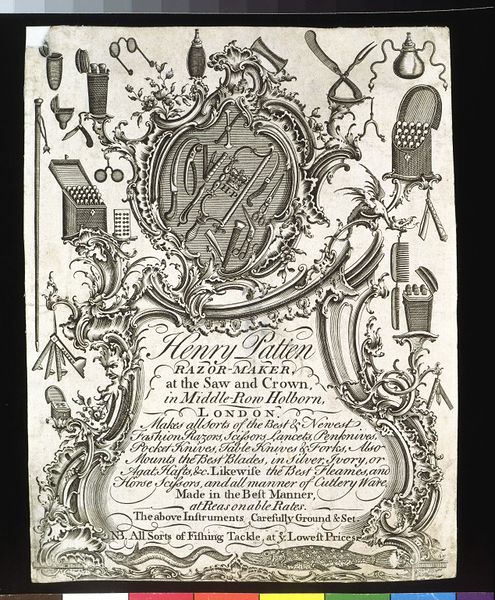 Henry Patten
RAZOR-MAKER,
at the Saw and Crown,
in Middle-Row Holborn,
LONDON.
Makes all Sorts of the Best & Newest
Fashion Razors, Scissors, Lancets, Penknives,
Pocket Knives, Table Knives & Forks, Also
Mounts the Best Blades, in Silver, Ivory, or
Agat, Hafts, &c. Likewise the Best Fleames, and
Horse Scissors, and all manner of Cutlery Ware,
Made in the Best Manner,
at Reasonable Rates.
The above Instruments Carefully Ground & Set
NB. All Sorts of Fishing Tackle, at ye. Lowest Prices